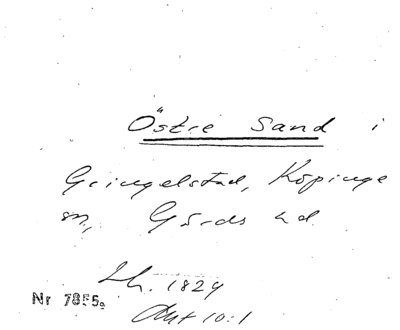 Östre Sand i
Gringelstad, Köpinge
sn, Gärds hd.
Lh. 1829
Nr 7855a
Akt 10:1